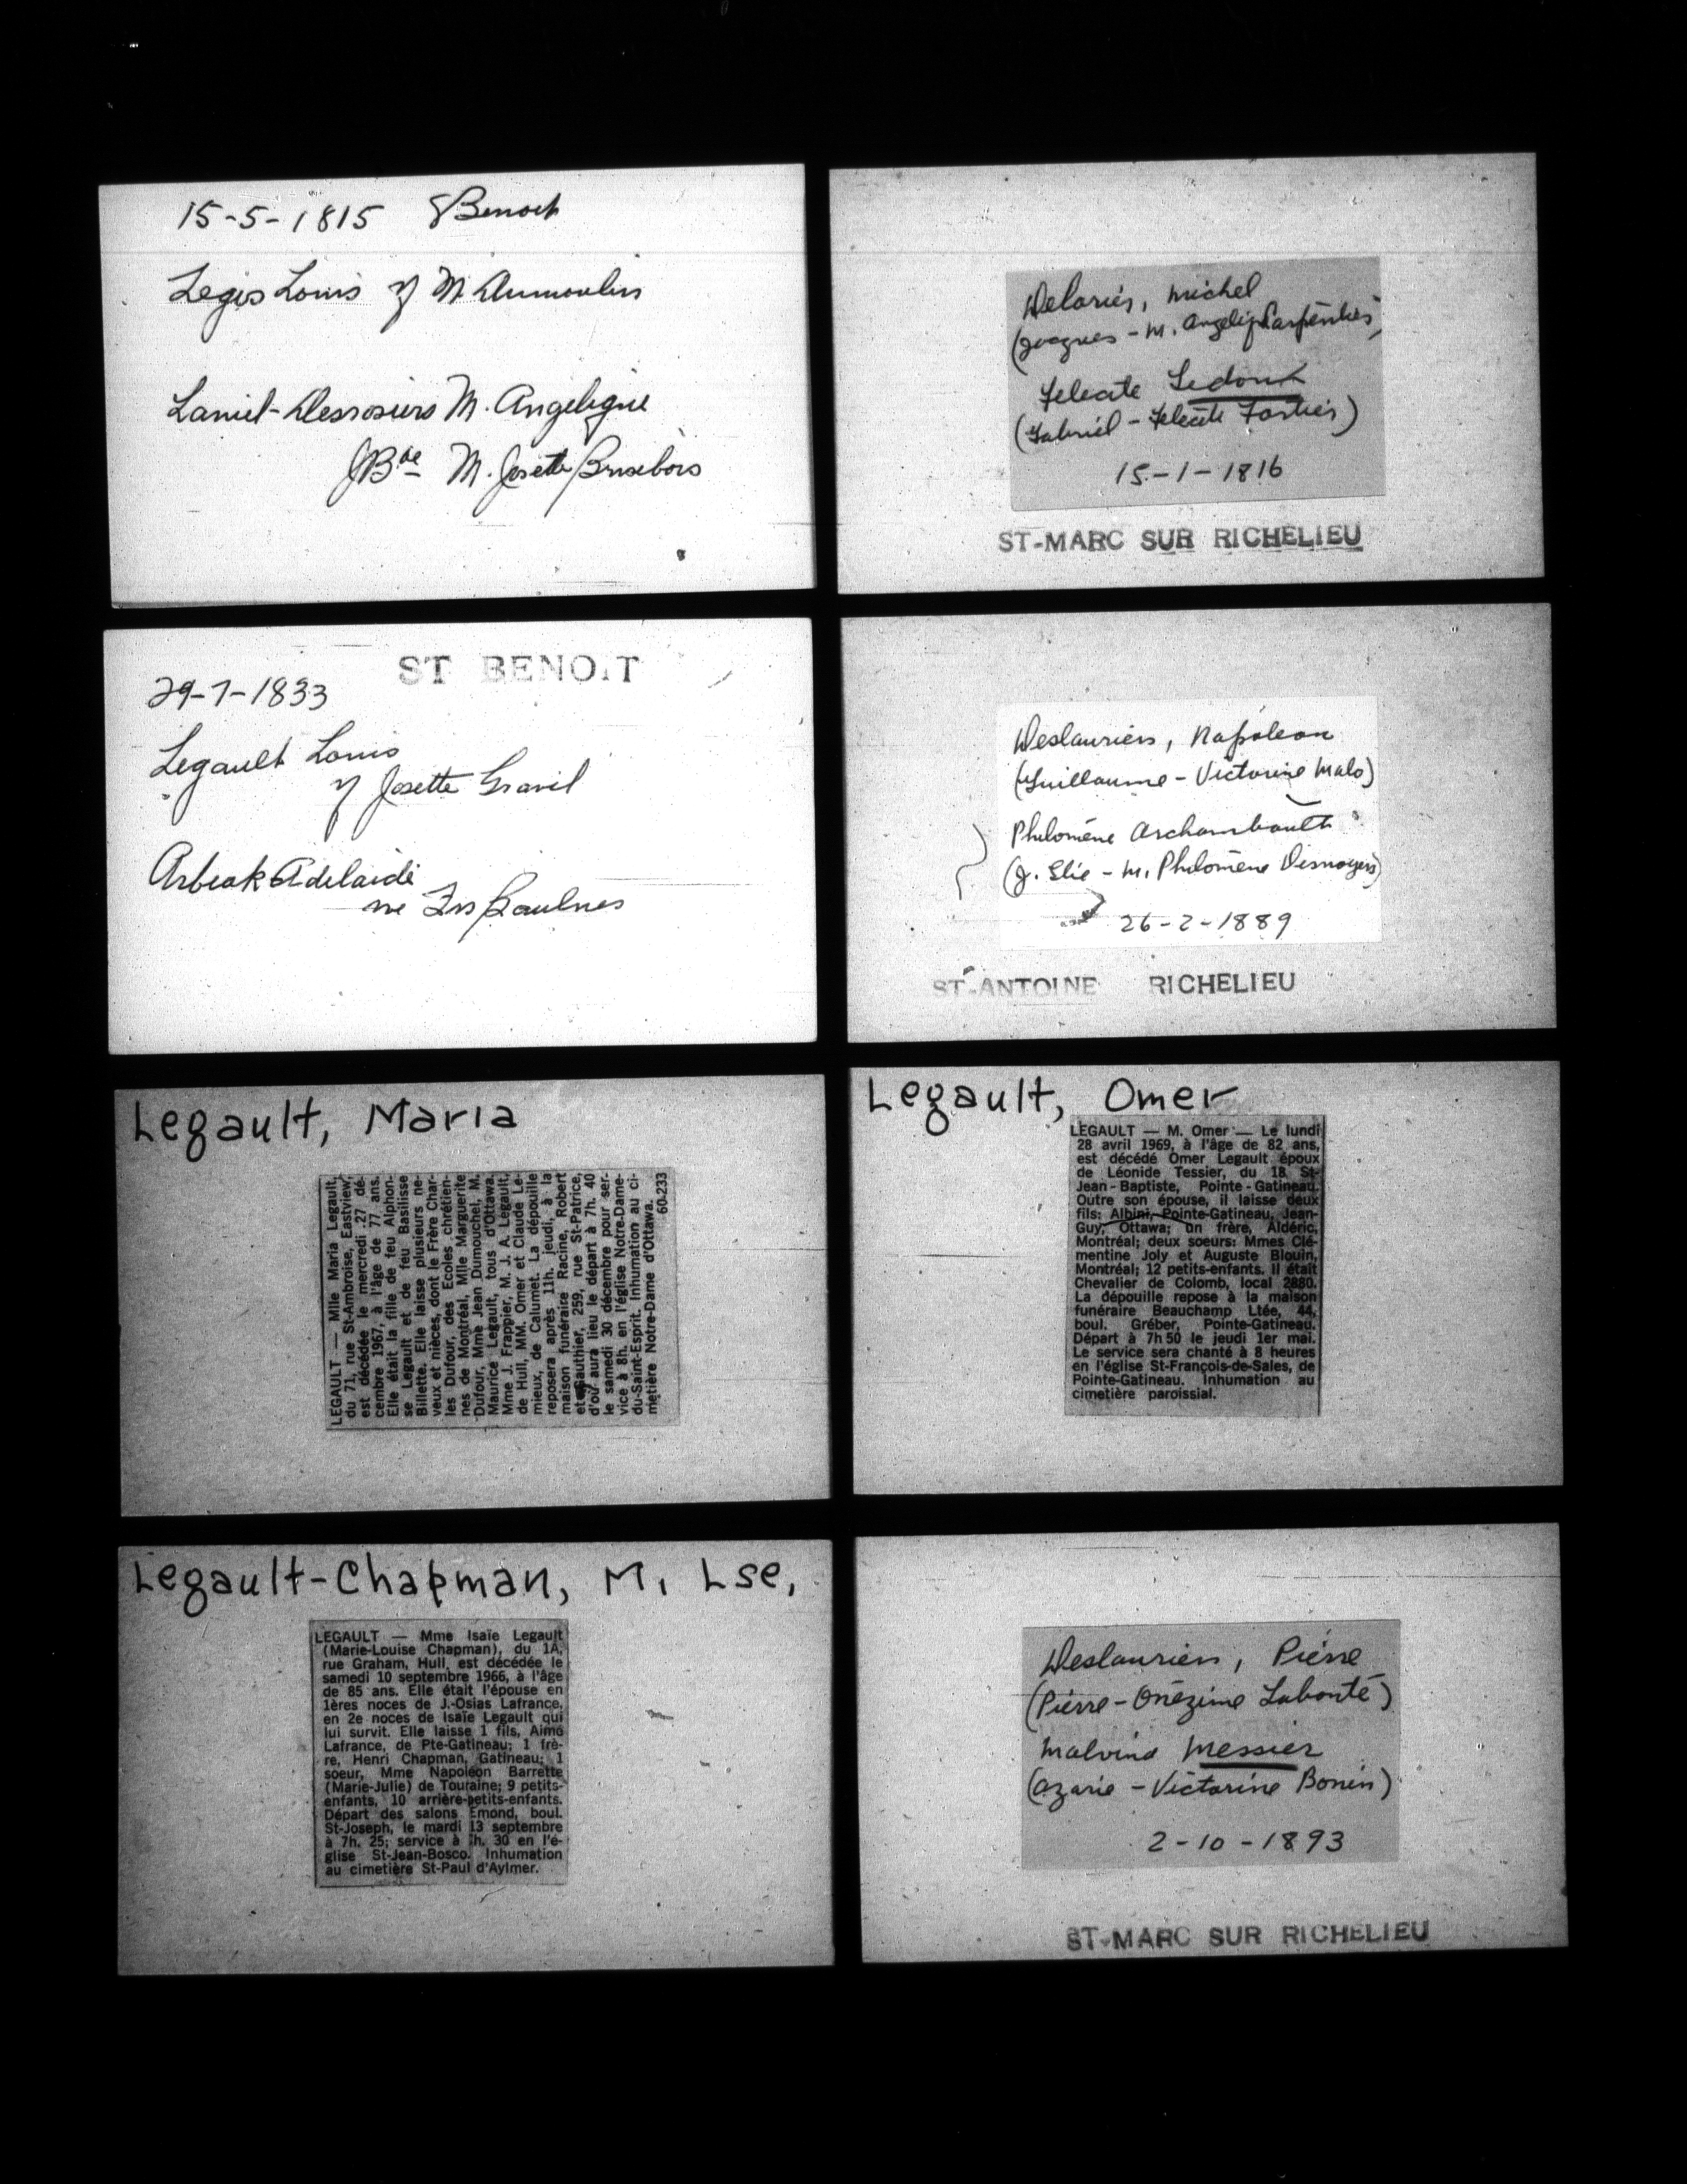 15-5-1815 St Benoit
Legis Louis vf M. Dumoulin
Laniel-Desrosiers M. Angelique
JBte M. Josette Brisebois
Delorier, Michel
(Jacques - M. Angeliq Carpentier)
Felicite Ledoux
(Gabriel - Felicite Fortier)
15-1-1816
ST-MARC SUR RICHELIEU
ST BENOIT
29-7-1833
Legault Louis
vf Josette Gravel
Adelaide
ve Frs Baulnes
Deslauriers, Napoleon
(Guillaume - Victorine Malo)
Philomène Archambault
(J. Elie - M. Philomène Desnoyers)
26-2-1889
ST-ANTOINE RICHELIEU
Legault, Maria
LEGAULT — Mlle Maria Legault,
du 71, rue St-Ambroise, Eastview,
est décédée le mercredi 27 dé-
cembre 1967, à l'âge de 77 ans.
Elle était la fille de feu Alphon-
se Legault et de feu Basilisse
Billette. Elle laisse plusieurs ne-
veux et nièces, dont le Frère Char-
les Dufour, des Ecoles chrétien-
nes de Montréal, Mlle Marguerite
Dufour, Mme Jean Dumouchel, M.
Maurice Legault, tous d'Ottawa,
Mme J. Frappier, M. J. A. Legault,
de Hull, MM. Omer et Claude Le-
mieux, de Calumet. La dépouille
reposera après 11h. jeudi, à la
maison funéraire Racine, Robert
et Gauthier, 259, rue St-Patrice,
d'où aura lieu le départ à 7h. 40
le samedi 30 décembre pour ser-
vice à 8h. en l'église Notre-Dame-
du-Saint-Esprit. Inhumation au ci-
metière Notre-Dame d'Ottawa.
60-233
Legault, Omer
LEGAULT — M. Omer — Le lundi
28 avril 1969, à l'âge de 82 ans,
est décédé Omer Legault époux
de Léonide Tessier, du 18 St-
Jean-Baptiste, Pointe-Gatineau.
Outre son épouse, il laisse deux
fils: Albini, Pointe-Gatineau, Jean-
Guy, Ottawa; un frère, Aldéric,
Montréal; deux soeurs: Mmes Clé-
mentine Joly et Auguste Blouin,
Montréal; 12 petits-enfants. Il était
Chevalier de Colomb, local 2880.
La dépouille repose à la maison
funéraire Beauchamp Ltée, 44,
boul. Gréber, Pointe-Gatineau.
Départ à 7h 50 le jeudi 1er mai.
Le service sera chanté à 8 heures
en l'église St-François-de-Sales, de
Pointe-Gatineau. Inhumation au
cimetière paroissial.
Legault-Chapman, M. Lse.
LEGAULT — Mme Isaïe Legault
(Marie-Louise Chapman), du 1A,
rue Graham, Hull, est décédée le
samedi 10 septembre 1966, à l'âge
de 85 ans. Elle était l'épouse en
1ères noces de J.-Osias Lafrance,
en 2e noces de Isaïe Legault qui
lui survit. Elle laisse 1 fils, Aimé
Lafrance, de Pte-Gatineau; 1 frè-
re, Henri Chapman, Gatineau; 1
soeur, Mme Napoléon Barrette
(Marie-Julie) de Touraine; 9 petits-
enfants, 10 arrière-petits-enfants.
Départ des salons Emond, boul.
St-Joseph, le mardi 13 septembre
à 7h. 25; service à h. 30 en l'é-
glise St-Jean-Bosco. Inhumation
au cimetière St-Paul d'Aylmer.
Deslauriers, Pierre
(Pierre - Onézime Labonté)
Malvina Messier
(Azarie - Victorine Bonin)
2-10-1893
ST-MARC SUR RICHELIEU